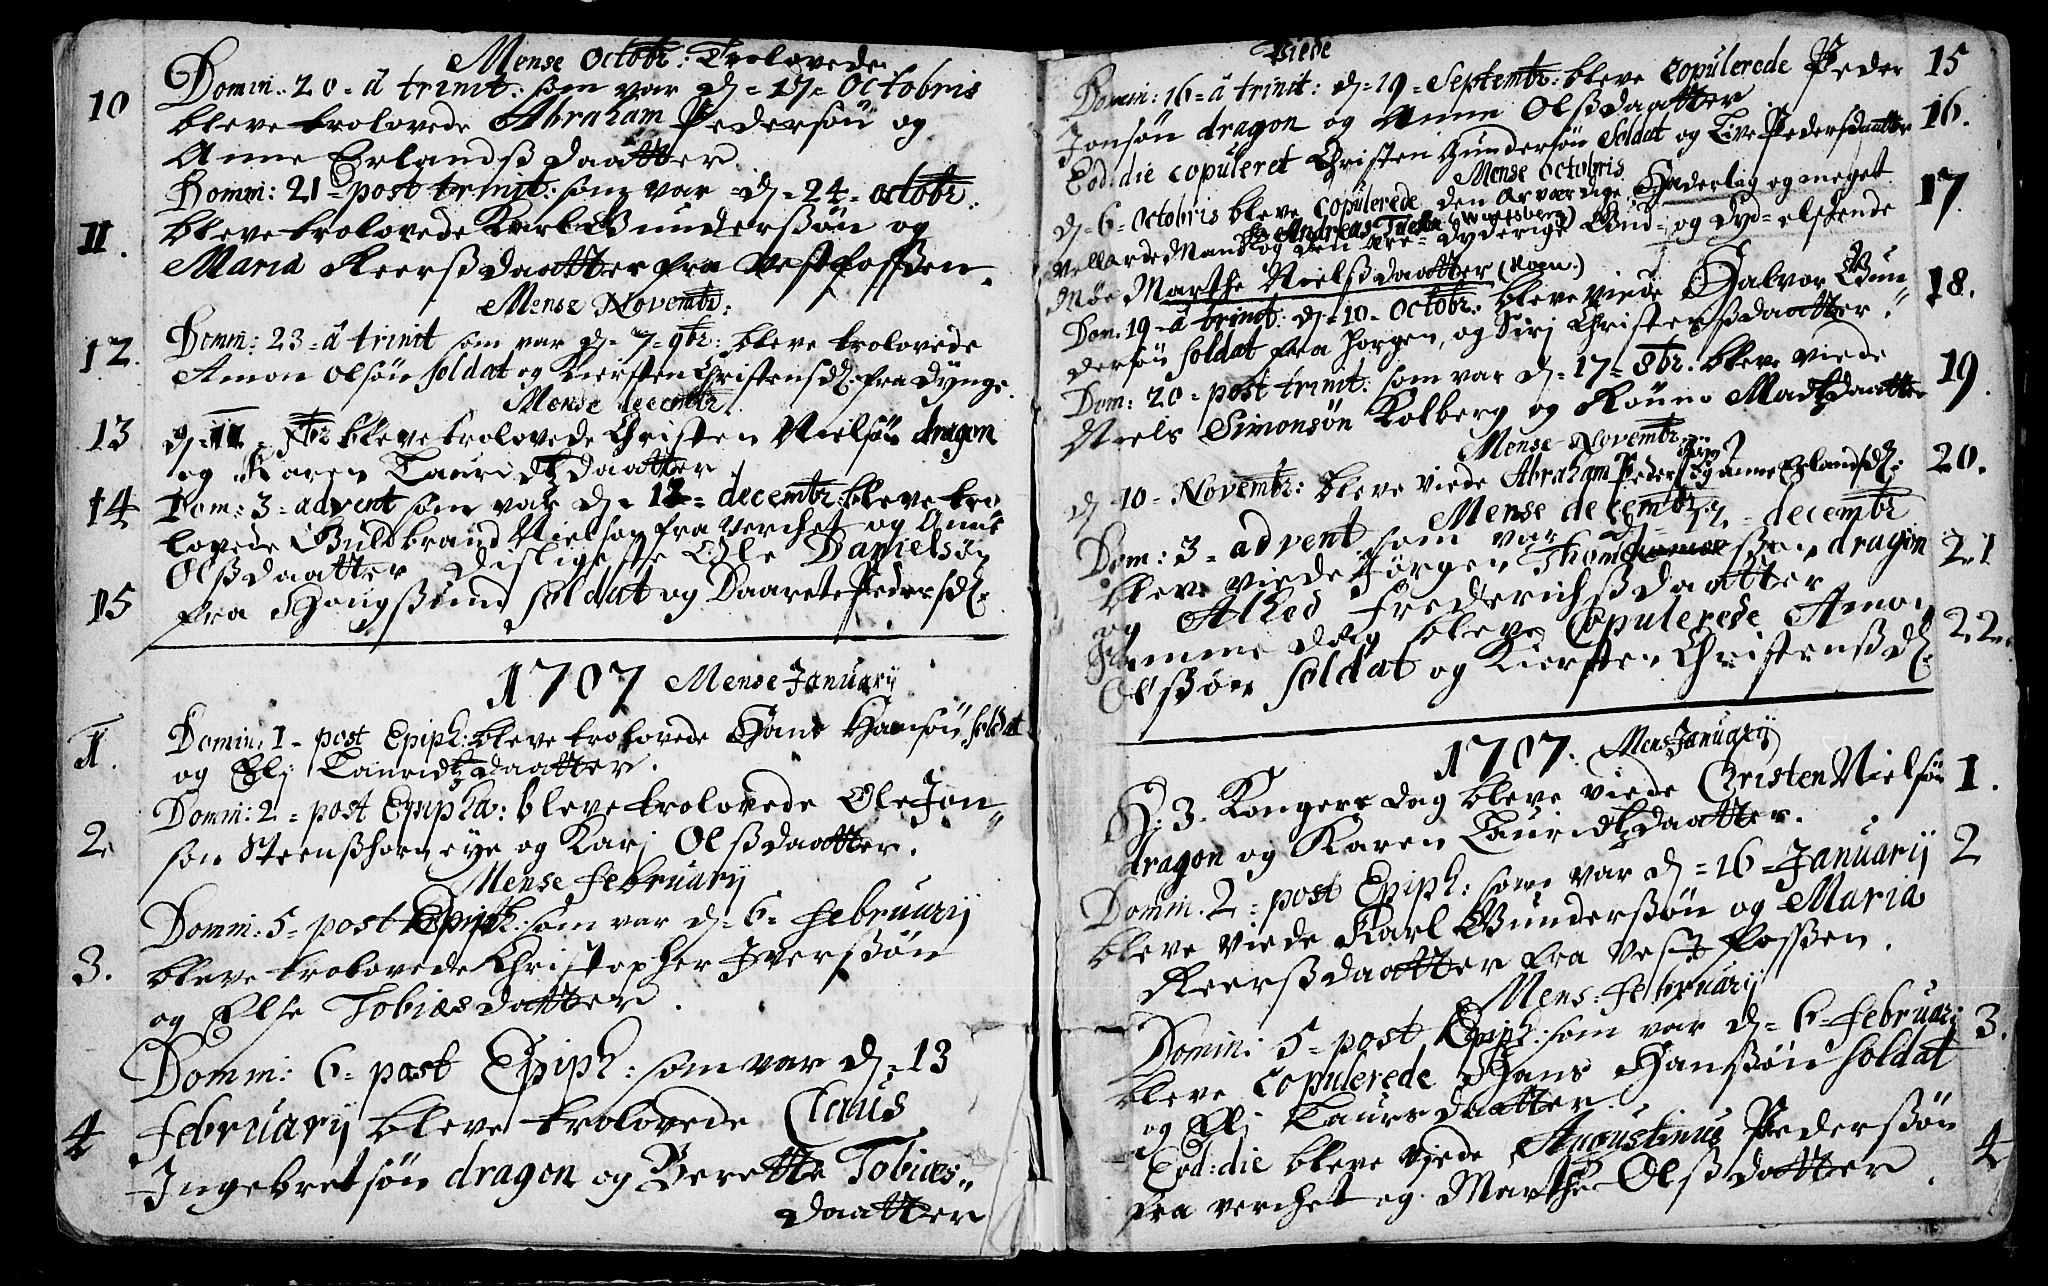 Mense Octobr: Trolovede
10 Domin. 20 = â trinit: som var d. = 17 = Octobris
bleve trolovede Abraham Pedersøn og
Anne Erlandsß daatter
Domin: 21 = post trinit: som var d. = 24 = octobr.
11. bleve trolovede Karl Gundersßøn og
Maria Reersß daatter fra Vestfosßen.
Mense Novembr:
12. Domin: 23 = â trinit som var d. = 7 = 9br: bleve trolovede
Amon Olsøn soldat og Kiersten Christensd. fra Dynge.
Mense decembr
13 d. = 11 = Xbr bleve trolovede Christen Nielsøn dragon
og Karen Lauridtzdaatter
14 Dom: 3 = advent som var d. = 12 = decembr: bleve tro
lovede Guldbrand Nielsøn fra Verchet og Anne
Olsß daatter Disligeste Ole Danielsøn
15 fra Hougsßund soldat og Daarete Pedersd.
1707 Mense January
1. Domin: 1 = post Epiph: bleve trolovede Hans Hansøn soldat
og Eli Lauridtzdaatter.
Domin: 2 = post Epipha: bleve trolovede Ole Jon=
2. søn Steensßhorneye og Kari Olsßdaatter.
Mense february
Domin: 5 = post Epiph: som var d. = 6 = february
3. bleve trolovede Christopher Iversßøn
og Else Tobiædatter.
Domin: 6 = post Epiph: som var d. = 13
4 february bleve trolovede Claus
Ingebretsøn dragon og Berette Tobiæs=
daatter
Viede
Domin: 16 = â trinit: d. = 19 = Septembr: bleve Copulerede Peder 15
Jonsøn dragon og Anne Olsßdaatter
Eod: die copuleret Christen Gundersøn Soldat og Live Pedersdaatter 16.
Mense Octobris
d. 6 = Octobris bleve Copulerede den Ærværdige, Hæderlig og meget 17
Hr Andreas Tuchs (Wartberg)
Vellærde Mand og den ære = dyderige Gud = og dyd = elskende
Møe Marthe Nielsßdaatter
Dom. 19 = â trinit: d. = 10 = Octobr: bleve viede Halvor Gun= 18.
dersøn soldat fra horgen, og Siri Christensßdaatter.
Dom: 20 = post trinit: som var d. = 17 = 8br. bleve viede 19
Niels Simonsøn Kolberg og Rønne Madtzdaatter
Mense Novembr:
d. 10 = Novembr: bleve viede Abraham Pedersøn og Anne Erlandsd. 20.
Mense decembr
Dom: 3 = advent som var d. 12 = decembr
bleve viede Jørgen Thomæsßøn dragon 21
og Alhed frederichsßdaatter
Samme dag bleve Copulerede Amon 22.
Olsßøn soldat og Kiersten Christensßd.
1707. Mens January
H. 3. Kongers dag bleve viede Christen Nielsøn 1.
dragon og Karen Lauridtzdaatter.
Domin. 2 = post Epiph: som var d. = 16 = January 2
bleve viede Karl Gundersßøn og Maria
Reersßdaatter fra Vestfosßen.
Mens: february
Domin: 5 = post Epiph: som var d. = 6 = februari 3.
bleve Copulerede Hans Hansßøn soldat
og Eli Lauridsdaatter.
Eod: die bleve viede Augustinus Pedersßøn 4
fra verchet og Marthe Olsßdatter.